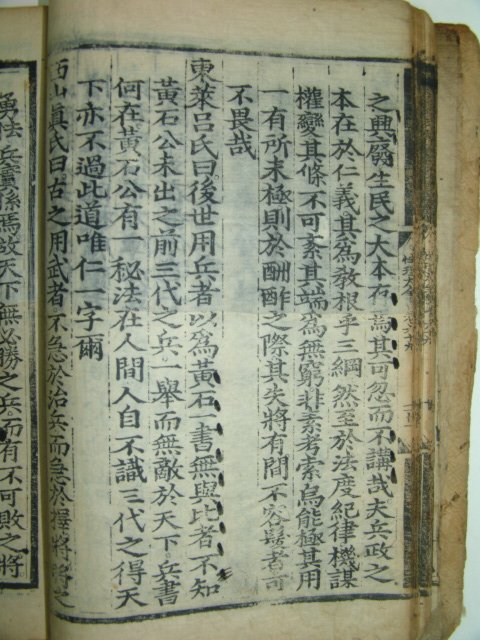 之興廢生民之大本存焉其可忽而不講哉夫兵政之
本在於仁義其爲教根乎三綱然至於法度紀律機謀
權變其條不可紊其端爲無窮非素考索烏能極其用
一有所未極則於酬酢之際其失將有間不容髮者可
不畏哉
東萊呂氏曰後世用兵者以爲黃石一書無與比者不知
黃石公未出之前三代之兵一舉而無敵於天下兵書
何在黃石公有一秘法在人間人自不識三代之得天
下亦不過此道唯仁一字爾
西山眞氏曰古之用武者不急於治兵而急於擇將將之
勇怯兵實係焉故天下無必勝之兵而有不可敗之將
性理大全